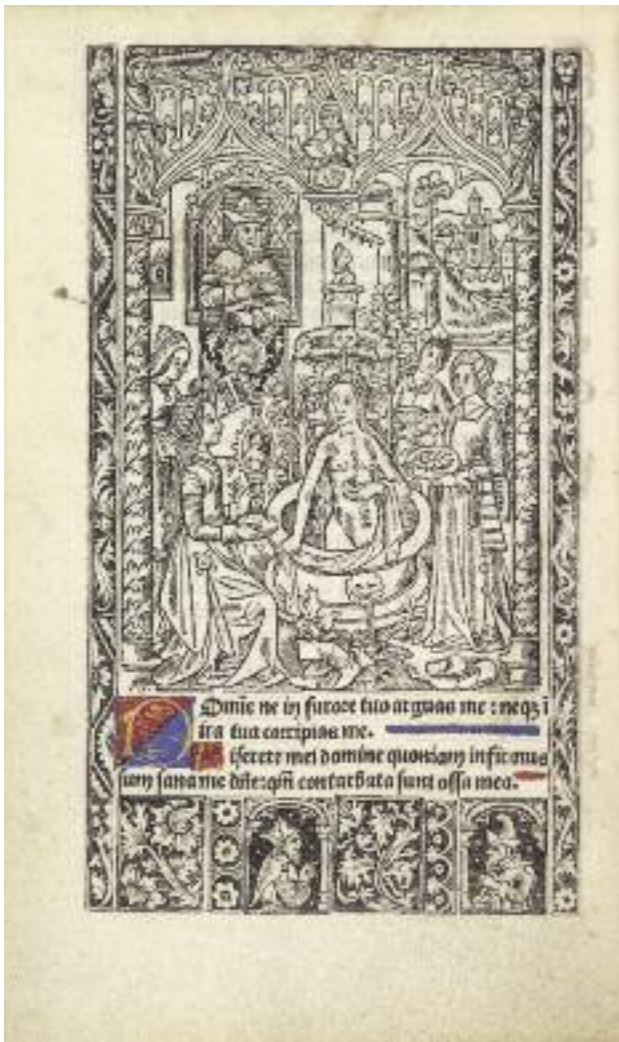 Domine ne in furore tuo arguas me : neqz i
ira tua corripias me.
Miserere mei domine quoniam infirmus
sum sana me dñe: qm̃ conturbata sunt ossa mea.